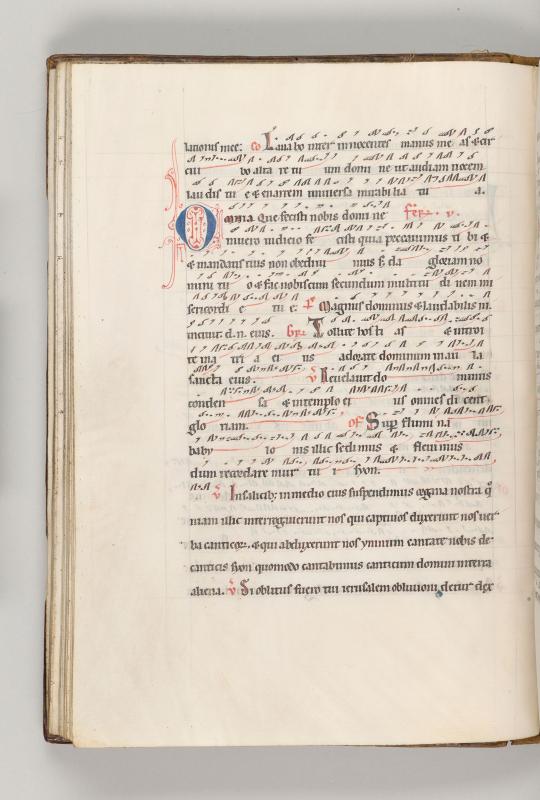 lationis mee. co Lauabo inter innocentes manus me as & cir
cui bo alta re tu um domi ne ut audiam uocem
laudis tu e & enarrem uniuersa mirabilia tu a.
Omnia. Que fecisti nobis domi ne feria. v.
in uero iudicio fe cisti quia peccauimus ti bi &
& mandatis tuis non obediui mus s& da gloriam no
mini tu o & fac nobiscum secundum multitu di nem mi
sericordi e tu e. ps Magnus dominus & laudabilis ni.
in ciuit. d. n. eius. Gr Tollite hosti as & introi
te in a tri a ei us adorate dominum in au la
sancta eius. v Reuelauit do minus
conden sa & in templo ei us omnes di cent
glo riam. of Sup flumi na
baby lo nis illic sedimus & fleui mus
dum recordare mur tu i syon.
v In salicib; in medio eius suspendimus organa nostra q
niam illic interrogauerunt nos qui captiuos duxerunt nos uer
ba canticor. & qui abduxerunt nos ymnum cantate nobis de
canticis syon quomodo cantabimus canticum domini in terra
aliena. v Si oblitus fuero tui ierusalem obliuioni detur dex